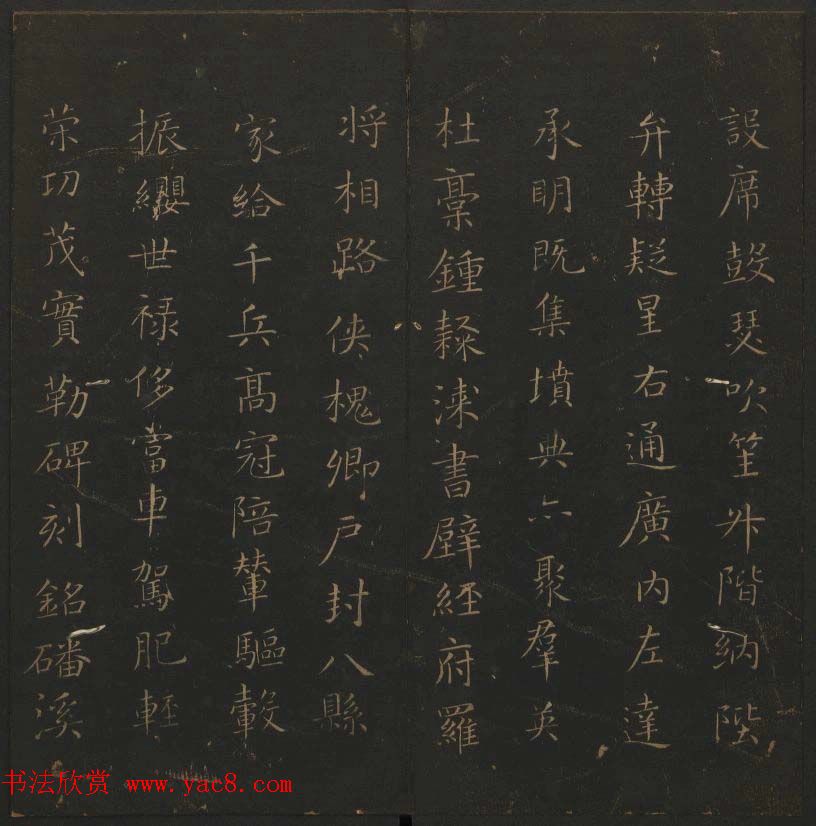 設席鼓瑟吹笙升階納陛
弁轉疑星右通廣内左達
承明既集墳典亦聚羣英
杜稾鍾隸漆書壁經府羅
将相路侠槐卿戶封八縣
家給千兵高冠陪輦驅轂
振纓世禄侈富車駕肥輕
荣功茂實勒碑刻銘磻溪
书法欣赏 www.yac8.com